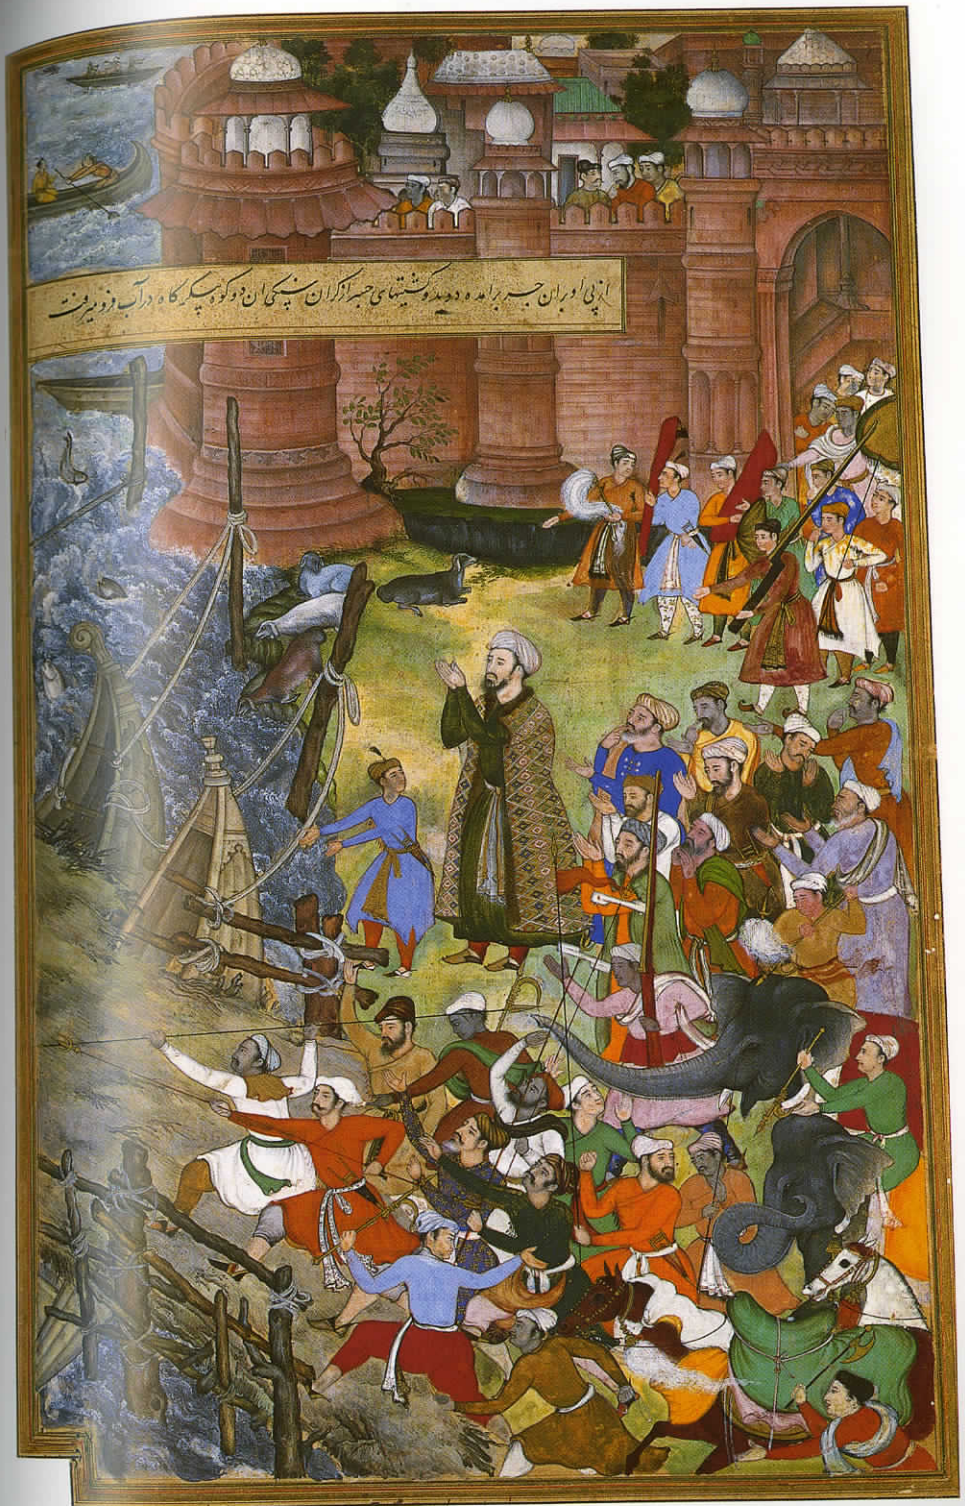 ازپی او بران جسر برامده دوید و کشتیهای جسر از کران سنکی ان دو کوه پیکر کاه در آب فرو میرفت